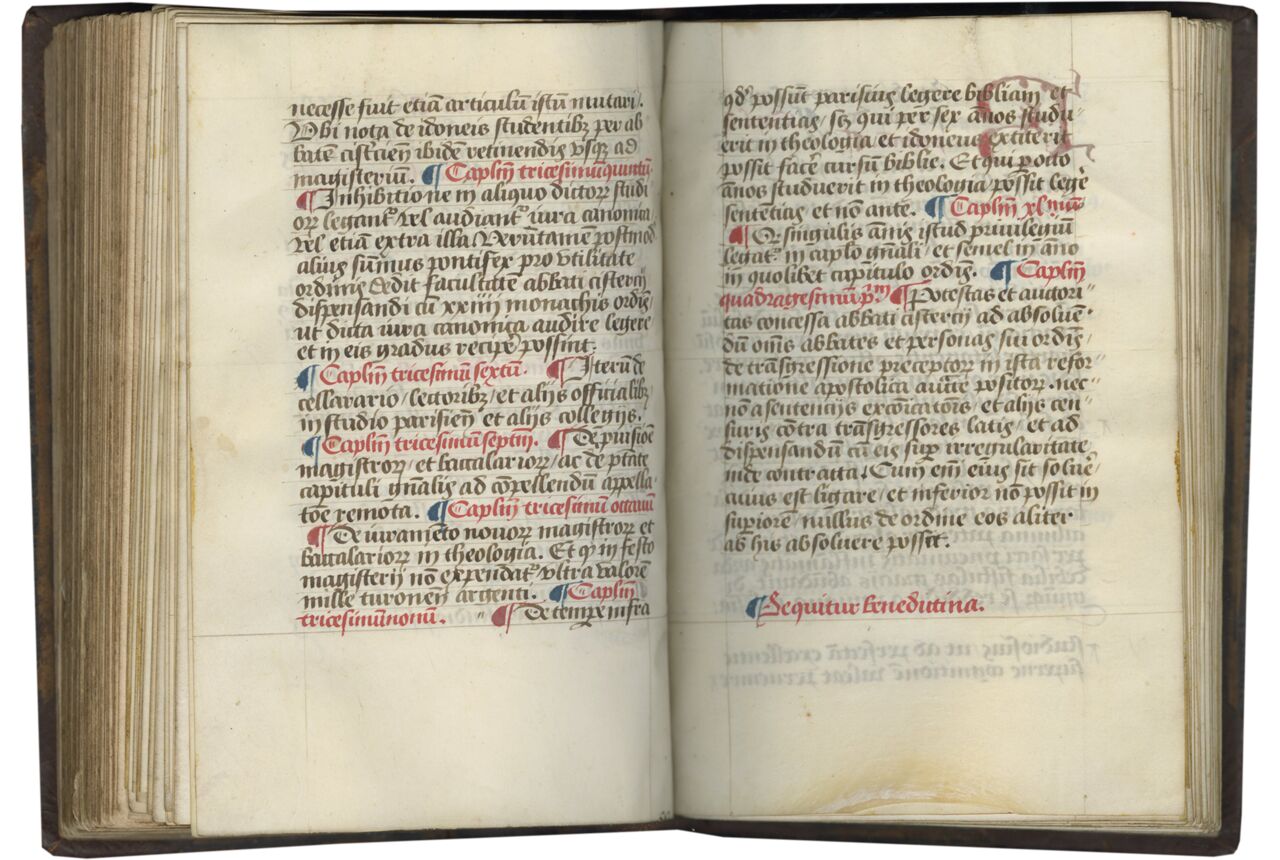 necesse fuit etiā articulū istū mutari.
Vbi nota de idoneis studentibꝫ per ab
batē cisterciēn ibidē retinendis vsqꝫ ad
magisteriū. ¶ Caplm̄ tricesimūquintū
¶ Inhibitio ne in aliquo dictoꝝ studi
oꝝ legantʳ vel audiantʳ iura canonica
vel etiā extra illa. Verūtamē postmod
alius sūmus pontifex pro vtilitate
ordinis dedit facultatē abbati cistercij
dispensandi cū xxiiij monachis ordīs
ut dicta iura canonica audire legere
et in eis gradus recipe possint.
¶ Caplm̄ tricesimū sextū. ¶ Iterū de
cellerario / lectoribꝫ / et alijs officialibꝫ
in studio parisiēn et alijs collegijs.
¶ Caplm̄ tricesimū septm̄. ¶ De puisiōe
magistroꝝ / et baccalarioꝝ / ac de ptāte
capituli gnāalis ad cōpellendū appella
tōe remota. ¶ Caplm̄ tricesimū octauū
¶ De iuramēto nouoꝝ magistroꝝ et
baccalarioꝝ in theologia. Et qꝫ in festo
magisterij nō expendatʳ vltra valorē
mille turonēn argenti. ¶ Caplm̄
tricesimūnonū. " ¶ De tempe infra
qd possūt parisius legere bibliam et
sententias / sꝫ qui per sex ānos studu
erit in theologia et idoneus extiterit
possit facere cursū biblie. Et qui p octo
ānos studuerit in theologia / possit legē
sententias et nō ante. ¶ Caplm̄ xlmū
¶ Qꝫ singulis ānis istud priuilegiū
legatʳ in caplo gnāli / et semel in āno
in quolibet capitulo ordīs. ¶ Caplm̄
quadragesimū pᵐ ¶ Potestas et auctori
tas concessa abbati cistercij ad absoluē
dū oīnis abbates et personas sui ordīs
de trāsgressione preceptoꝝ in ista refor
matione apostolica aucte positoꝝ. nec
nō a sentencijs excōicatōnis / et alijs cen
suris cōtra trāsgressores latis / et ad
dispensandū cū eis sup irregularitate
inde contracta. Cuius em̄ eius sit soluē
cuius est ligare / et inferior nō possit in
superiorē / nullus de ordine eos aliter
ab his absoluere possit.
¶ Sequitur benedictina.